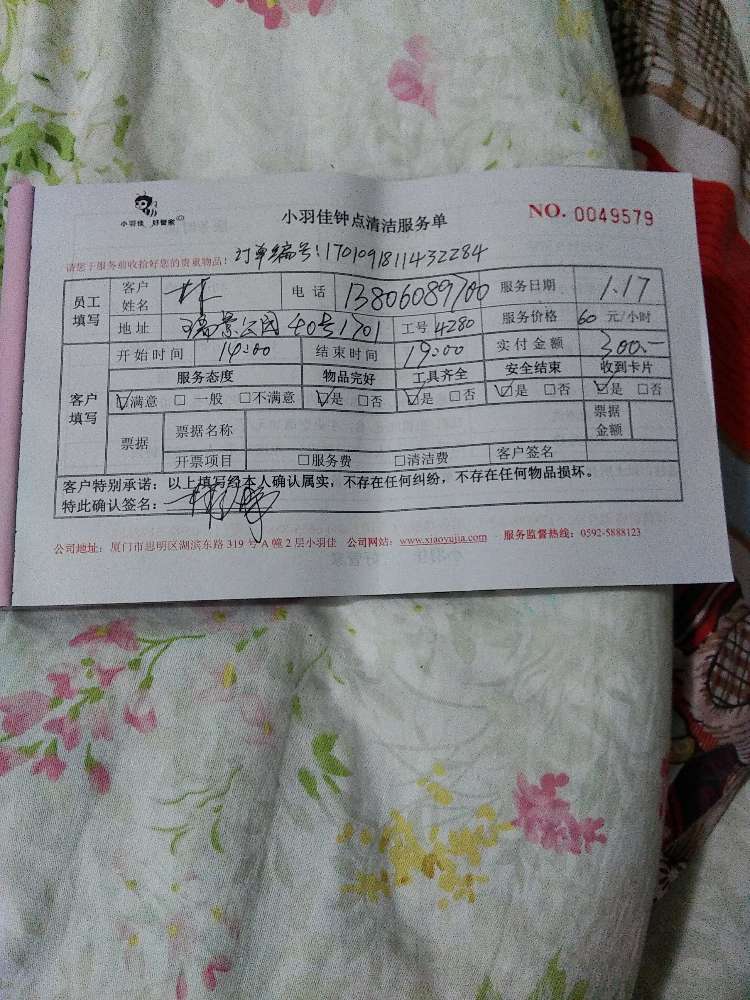 小羽佳 好管家
小羽佳钟点清洁服务单
NO. 0049579
请您于服务前收拾好您的贵重物品! 订单编号:1701091811432284
员工填写 客户姓名 林 电话 13806089700 服务日期 1.17
地址 瑞景公园40号1701 工号 4280 服务价格 60 元/小时
开始时间 14:00 结束时间 19:00 实付金额 300.-
客户填写 服务态度 物品完好 工具齐全 安全结束 收到卡片
☑满意 □一般 □不满意 ☑是 □否 ☑是 □否 ☑是 □否 ☑是 □否
票据 票据名称 票据金额
开票项目 □服务费 □清洁费 客户签名
客户特别承诺:以上填写经本人确认属实,不存在任何纠纷,不存在任何物品损坏。
特此确认签名:
公司地址:厦门市思明区湖滨东路 319 号 A 幢 2 层小羽佳 公司网站:www.xiaoyujia.com 服务监督热线:0592-5888123